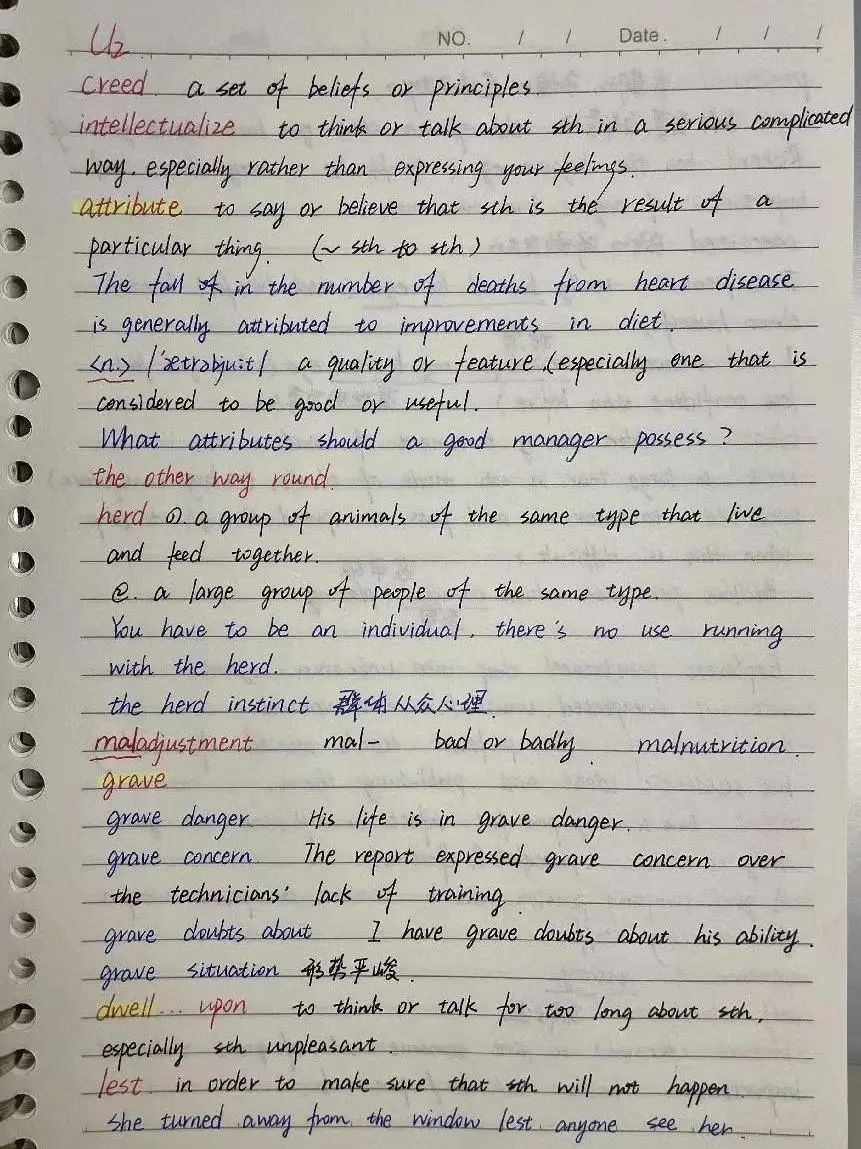 U2
NO. / / Date. / / /
creed a set of beliefs or principles
intellectualize to think or talk about sth in a serious complicated
way. especially rather than expressing your feelings.
attribute to say or believe that sth is the result of a
particular thing. (~ sth to sth)
The fall of in the number of deaths from heart disease
is generally attributed to improvements in diet.
<n.> a quality or feature (especially one that is
considered to be good or useful.
What attributes should a good manager possess?
the other way round.
herd ①. a group of animals of the same type that live
and feed together.
②. a large group of people of the same type.
You have to be an individual, there's no use running
with the herd.
the herd instinct 群体从众心理.
maladjustment mal- bad or badly malnutrition.
grave
grave danger His life is in grave danger.
grave concern The report expressed grave concern over
the technicians' lack of training
grave doubts about I have grave doubts about his ability.
grave situation 形势严峻.
dwell... upon to think or talk for too long about sth,
especially sth unpleasant.
lest in order to make sure that sth will not happen.
she turned away from the window lest anyone see her.